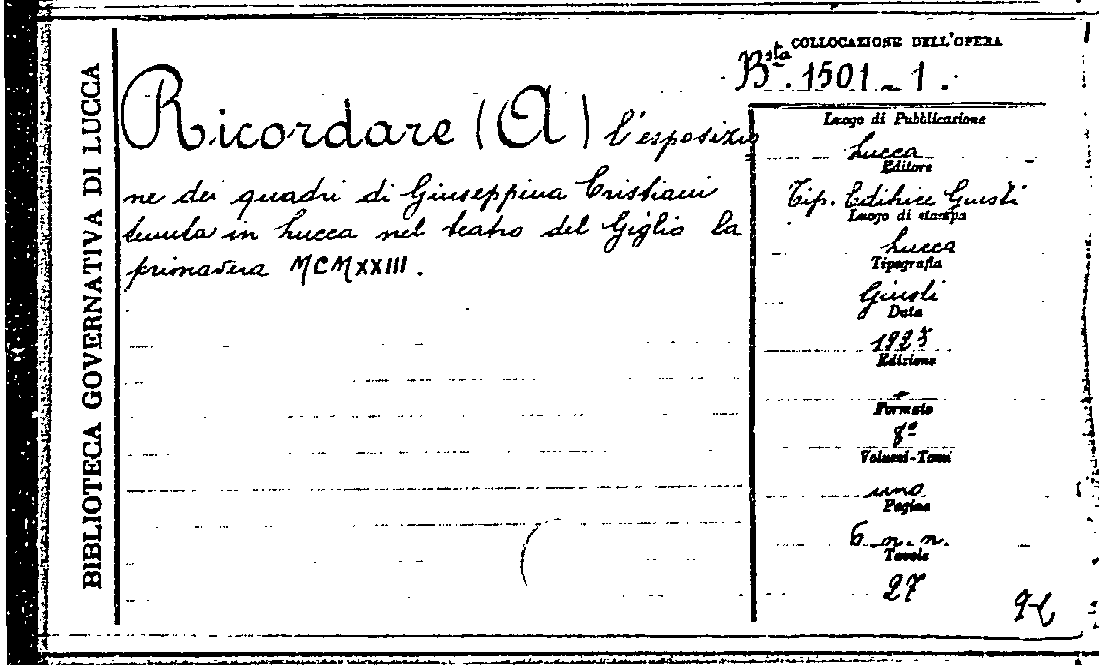 BIBLIOTECA GOVERNATIVA DI LUCCA
COLLOCAZIONE DELL'OPERA
Bsta. 1501-1.
Ricordare (A) l'esposizio
ne dei quadri di Giuseppina Cristiani
tenuta in Lucca nel teatro del Giglio la
primavera MCMXXIII.
Luogo di Pubblicazione
Lucca
Editore
Tip. Editrice Giusti
Luogo di stampa
Lucca
Tipografia
Giusti
Data
1923
Edizione
-
Formato
8º
Volumi-Tomi
uno
Pagine
6 n.n.
Tavole
27